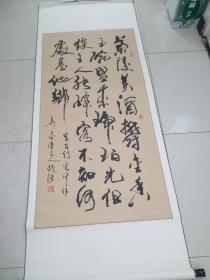 蘭陵美酒鬱金香
玉碗盛来琥珀光但
使主人能醉客不知何
處是他鄉
李白詩客中作